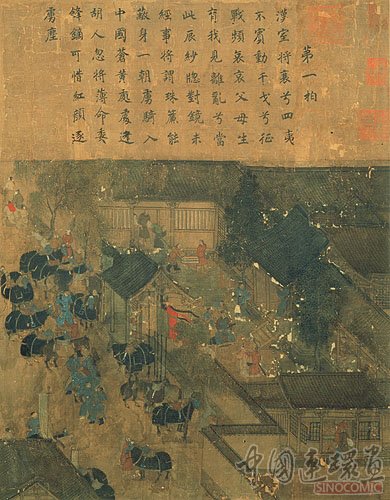 第一拍
漢室將衰兮四夷
不賓動干戈兮征
戰頻哀哀父母生
育我見離亂兮當
此辰紗窓對鏡未
經事將謂珠簾能
蔽身一朝虜騎入
中國蒼黃處處逢
胡人忽將薄命委
鋒鏑可惜紅顏逐
虜塵
中國連環畫
SINOCOMIC